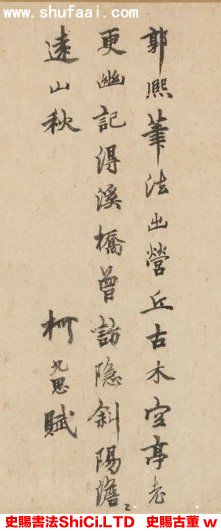 www.shufaai.com
郭熙筆法出營丘古木空亭老
更幽記得溪橋曾訪隐斜陽澹〻
遠山秋 柯九思賦
史賜書法ShiCi.L.LTD 史賜古董 w